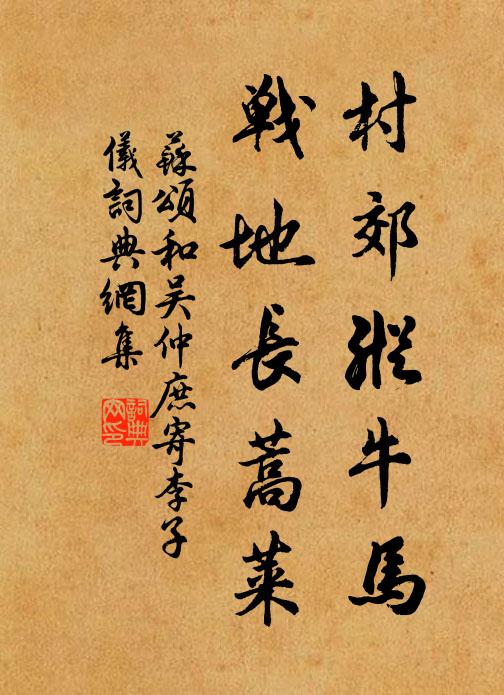 村郊縱牛馬
戰地長蒿萊
蘇頌和吳仲庶寄李子
儀詞典網集
詞典
网印